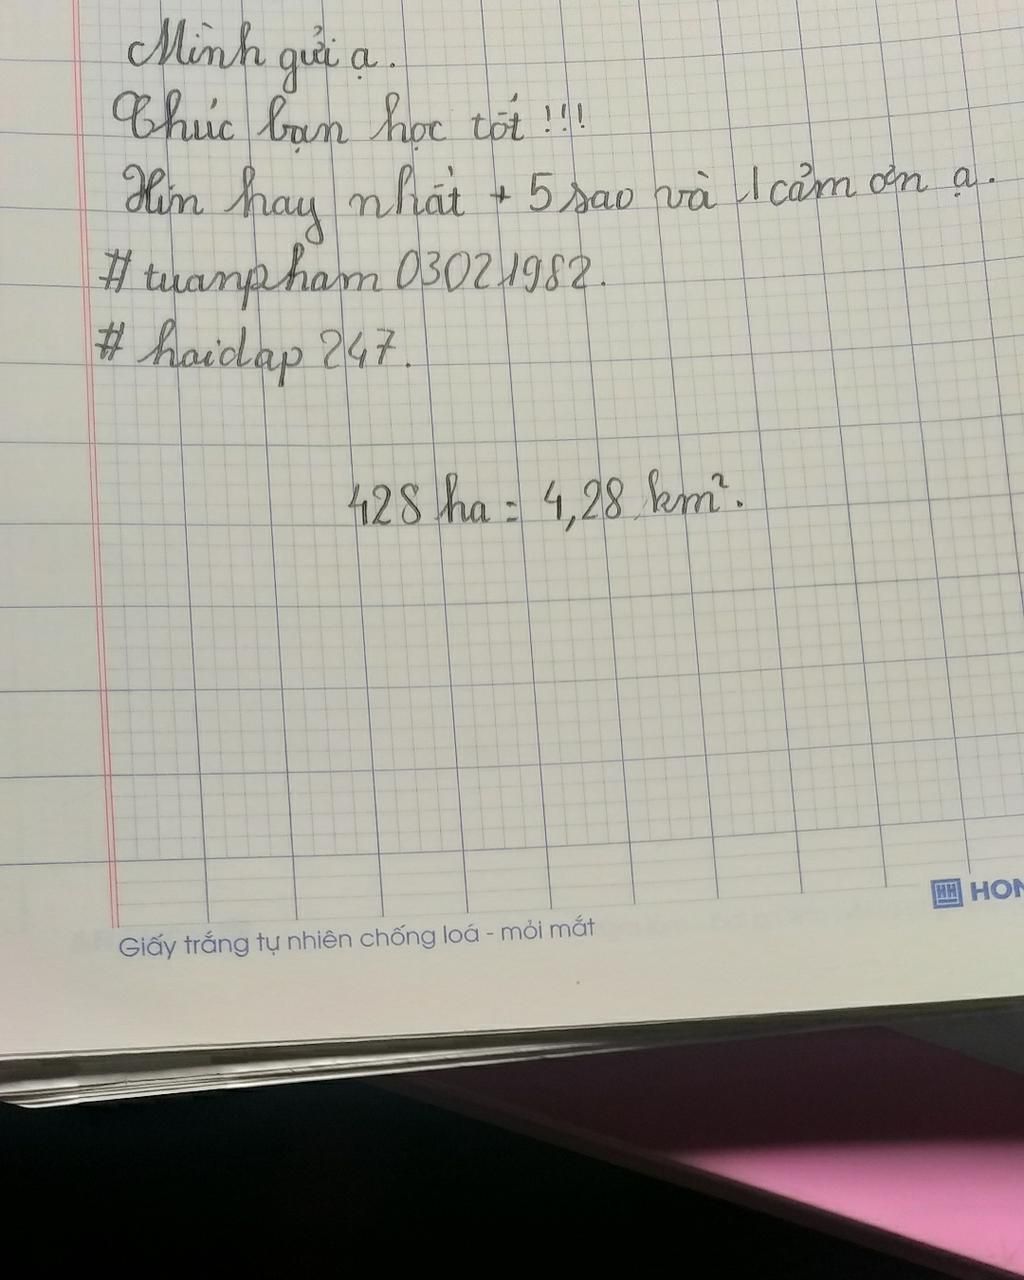 Mình gửi ạ.
Chúc bạn học tốt !!!
Xin hay nhất + 5 sao và 1 cảm ơn ạ.
# tuanpham 03021982.
# hoidap 247.
428 ha = 4,28 km².
HH HON
Giấy trắng tự nhiên chống loá - mỏi mắt